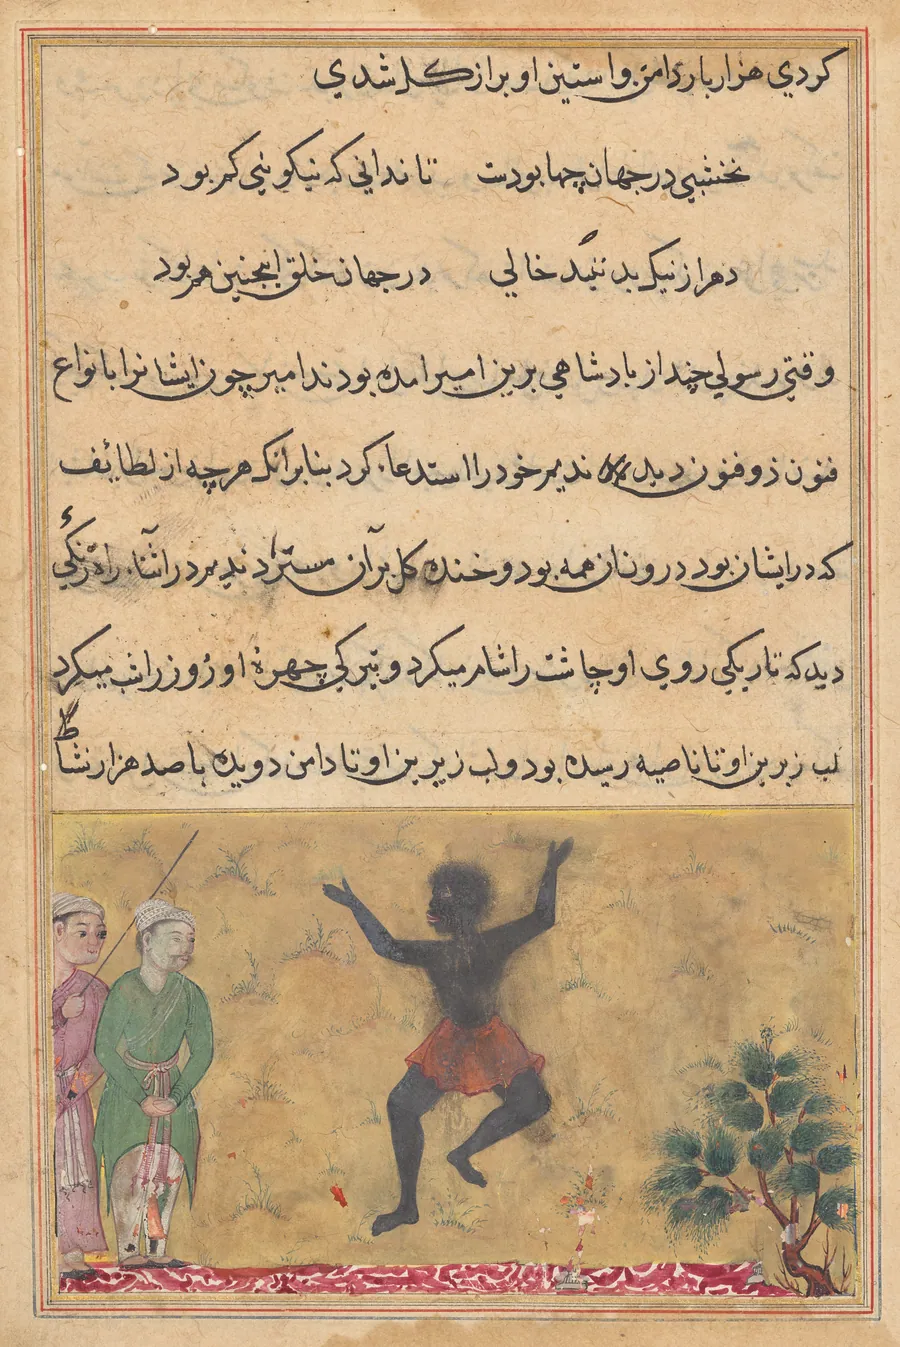 کردي هزار بار دامن و استین او بر از کل شدي
نخشبي در جهان چها بودست تا نداني که نیکویئي کم بود
دهر از نیک بد نبیند خالي در جهان خلق اینجنین هم بود
وقتي رسولي چند از بادشاهي برین امیر امده بودند امیر چون ایشانرا بانواع
فنون ذو فنون دید ندیم خود را استدعاء کرد بنابرانکه هرچه از لطایف
که در ایشان بود درو نان همه بود و خنده کل بر آن ندیم در آشناء راه زنکئي
دید که تاریکي روي او چاشت را شام میکرد و تیرکي چهرۀ او روز را شب میکرد
لب زبرین او تا ناصیه رسیده بود و لب زیرین او تا دامن دویده با صد هزار نشاط